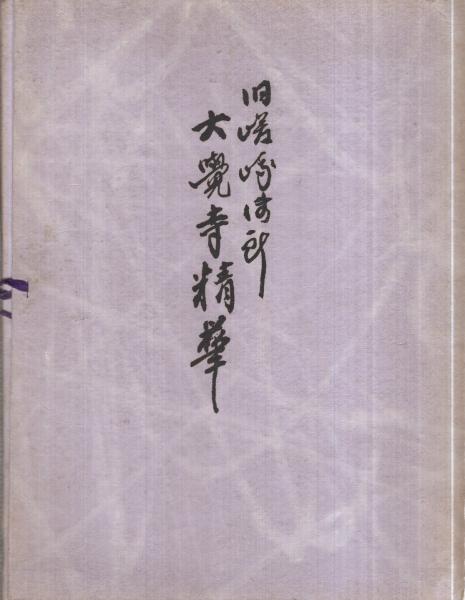 旧嵯峨御所
大覺寺精華